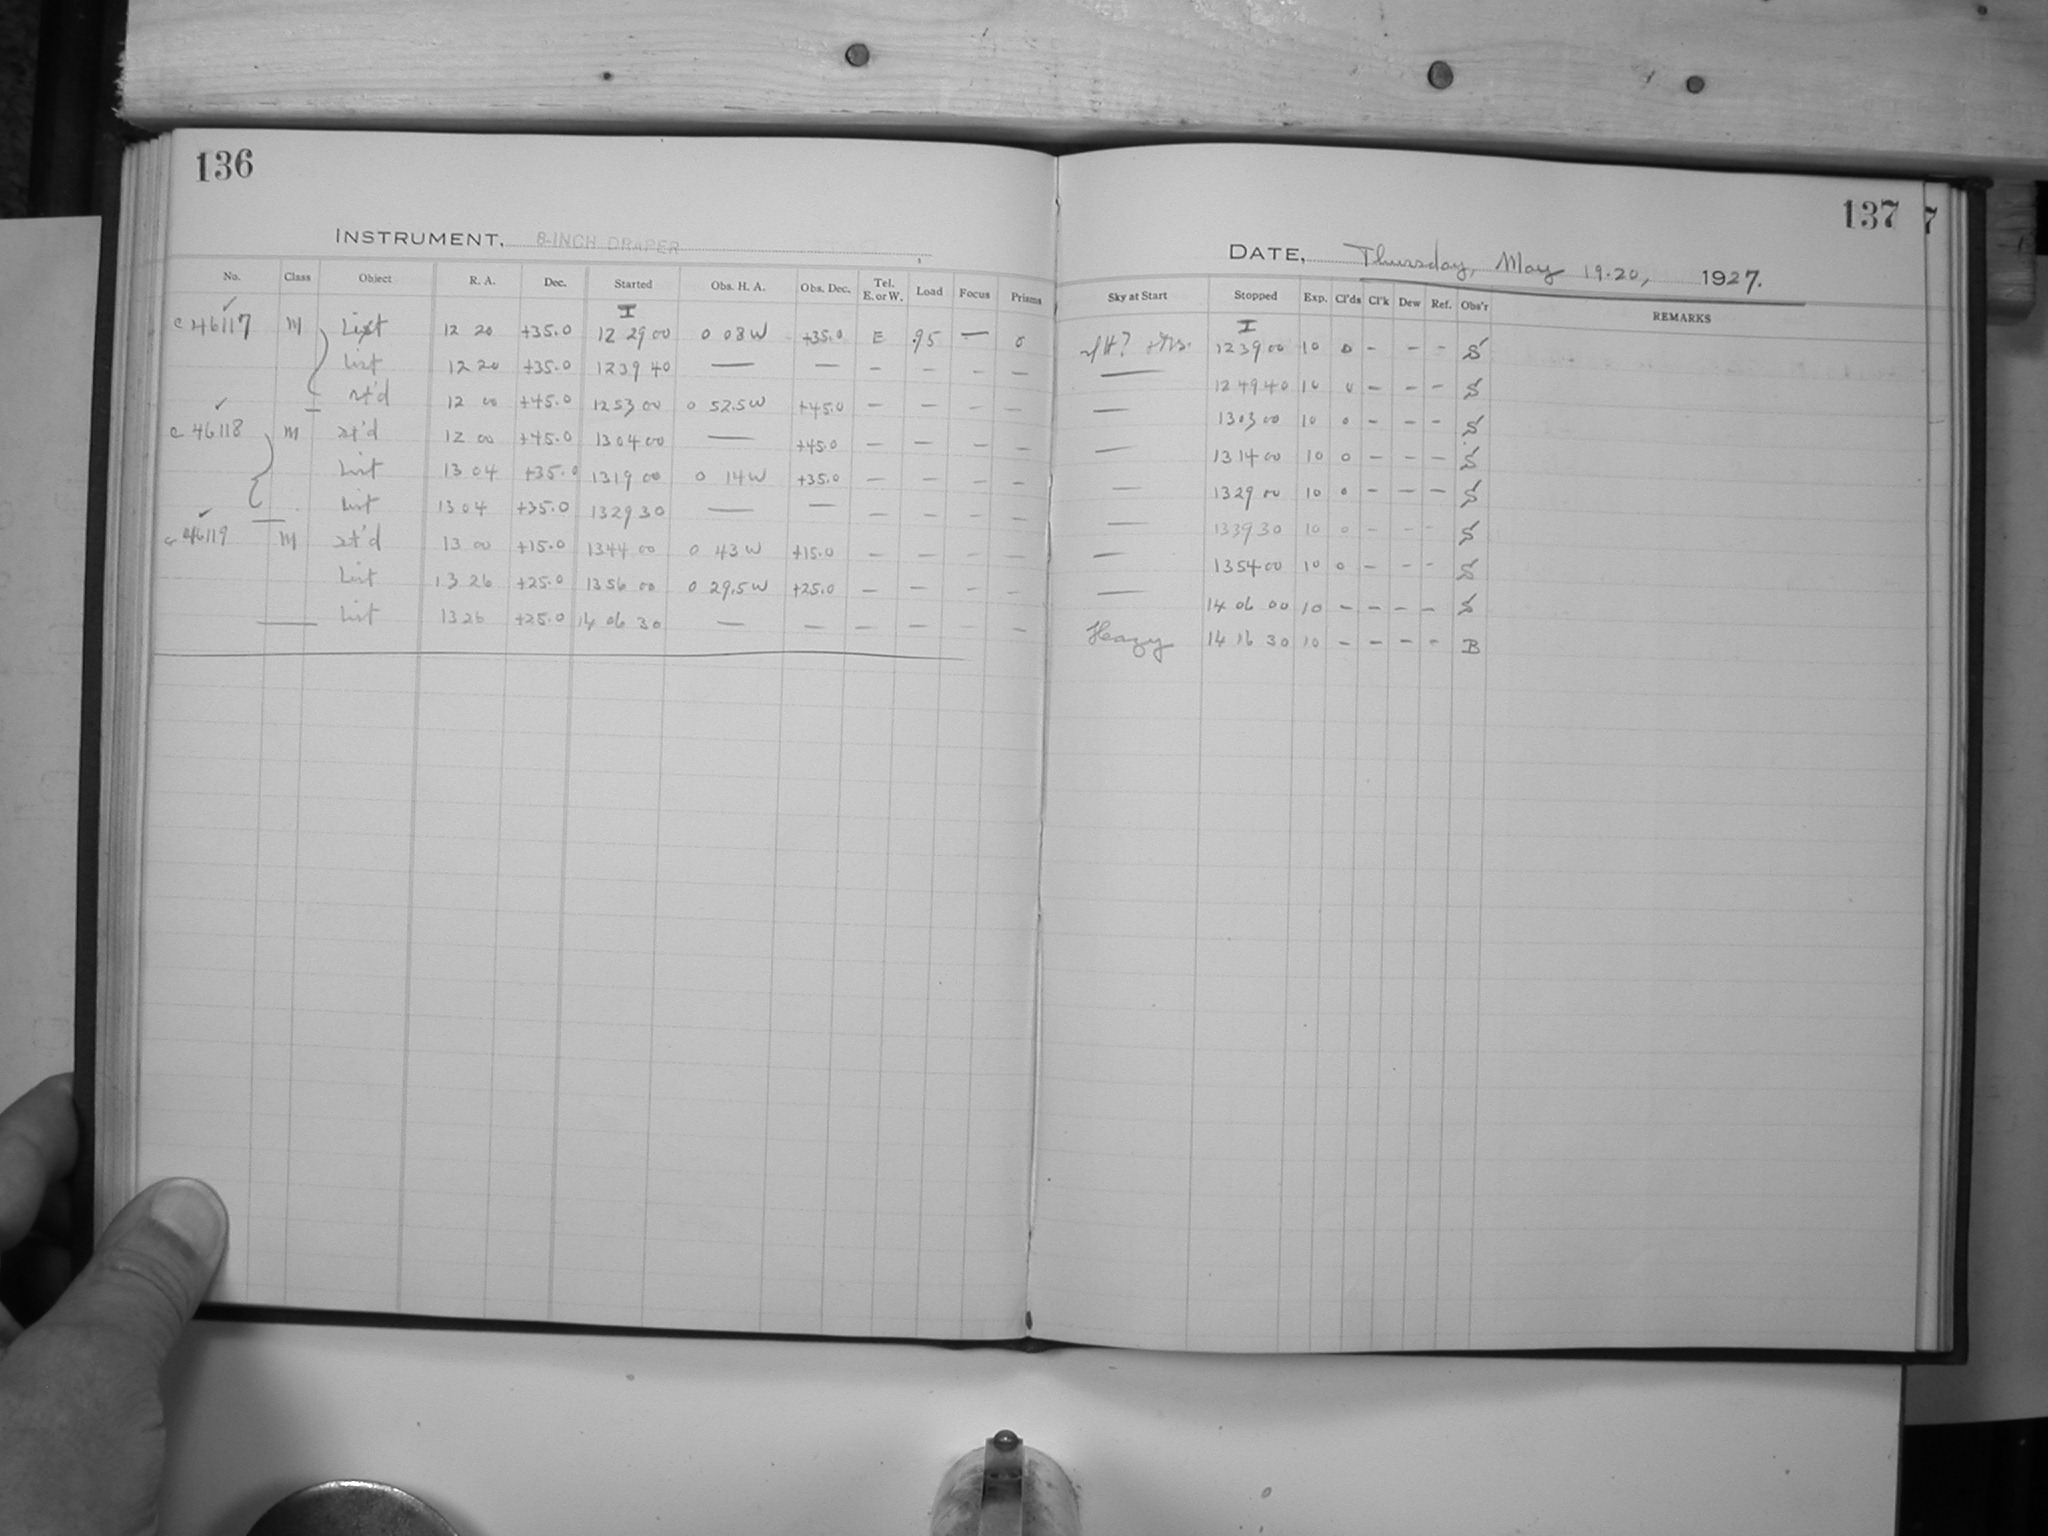 136
INSTRUMENT, 8-INCH DRAPER
No. Class Object R. A. Dec. Started Obs. H. A. Obs. Dec. Tel. E. or W. Load Focus Prisms
I
✓
c 46117 M List 12 20 +35.0 12 29 00 0 08 W +35.0 E .95 — 0
List 12 20 +35.0 12 39 40 — — — — — —
st'd 12 00 +45.0 12 53 00 0 52.5 W +45.0 — — — —
✓
c 46118 M st'd 12 00 +45.0 13 04 00 — +45.0 — — — —
List 13 04 +35.0 13 19 00 0 14 W +35.0 — — — —
List 13 04 +35.0 13 29 30 — — — — — —
✓
c 46119 M st'd 13 00 +15.0 13 44 00 0 43 W +15.0 — — — —
List 13 26 +25.0 13 56 00 0 29.5 W +25.0 — — — —
List 13 26 +25.0 14 06 30 — — — — — —
137
7
DATE, Thursday, May 19-20, 1927.
Sky at Start Stopped Exp. Cl'ds Cl'k Dew Ref. Obs'r REMARKS
I
12 39 00 10 0 - - - S
— 12 49 40 10 0 - - - S
— 13 03 00 10 0 - - - S
— 13 14 00 10 0 - - - S
— 13 29 00 10 0 - - - S
— 13 39 30 10 0 - - - S
— 13 54 00 10 0 - - - S
— 14 06 00 10 - - - - S
Heazy 14 16 30 10 - - - - B